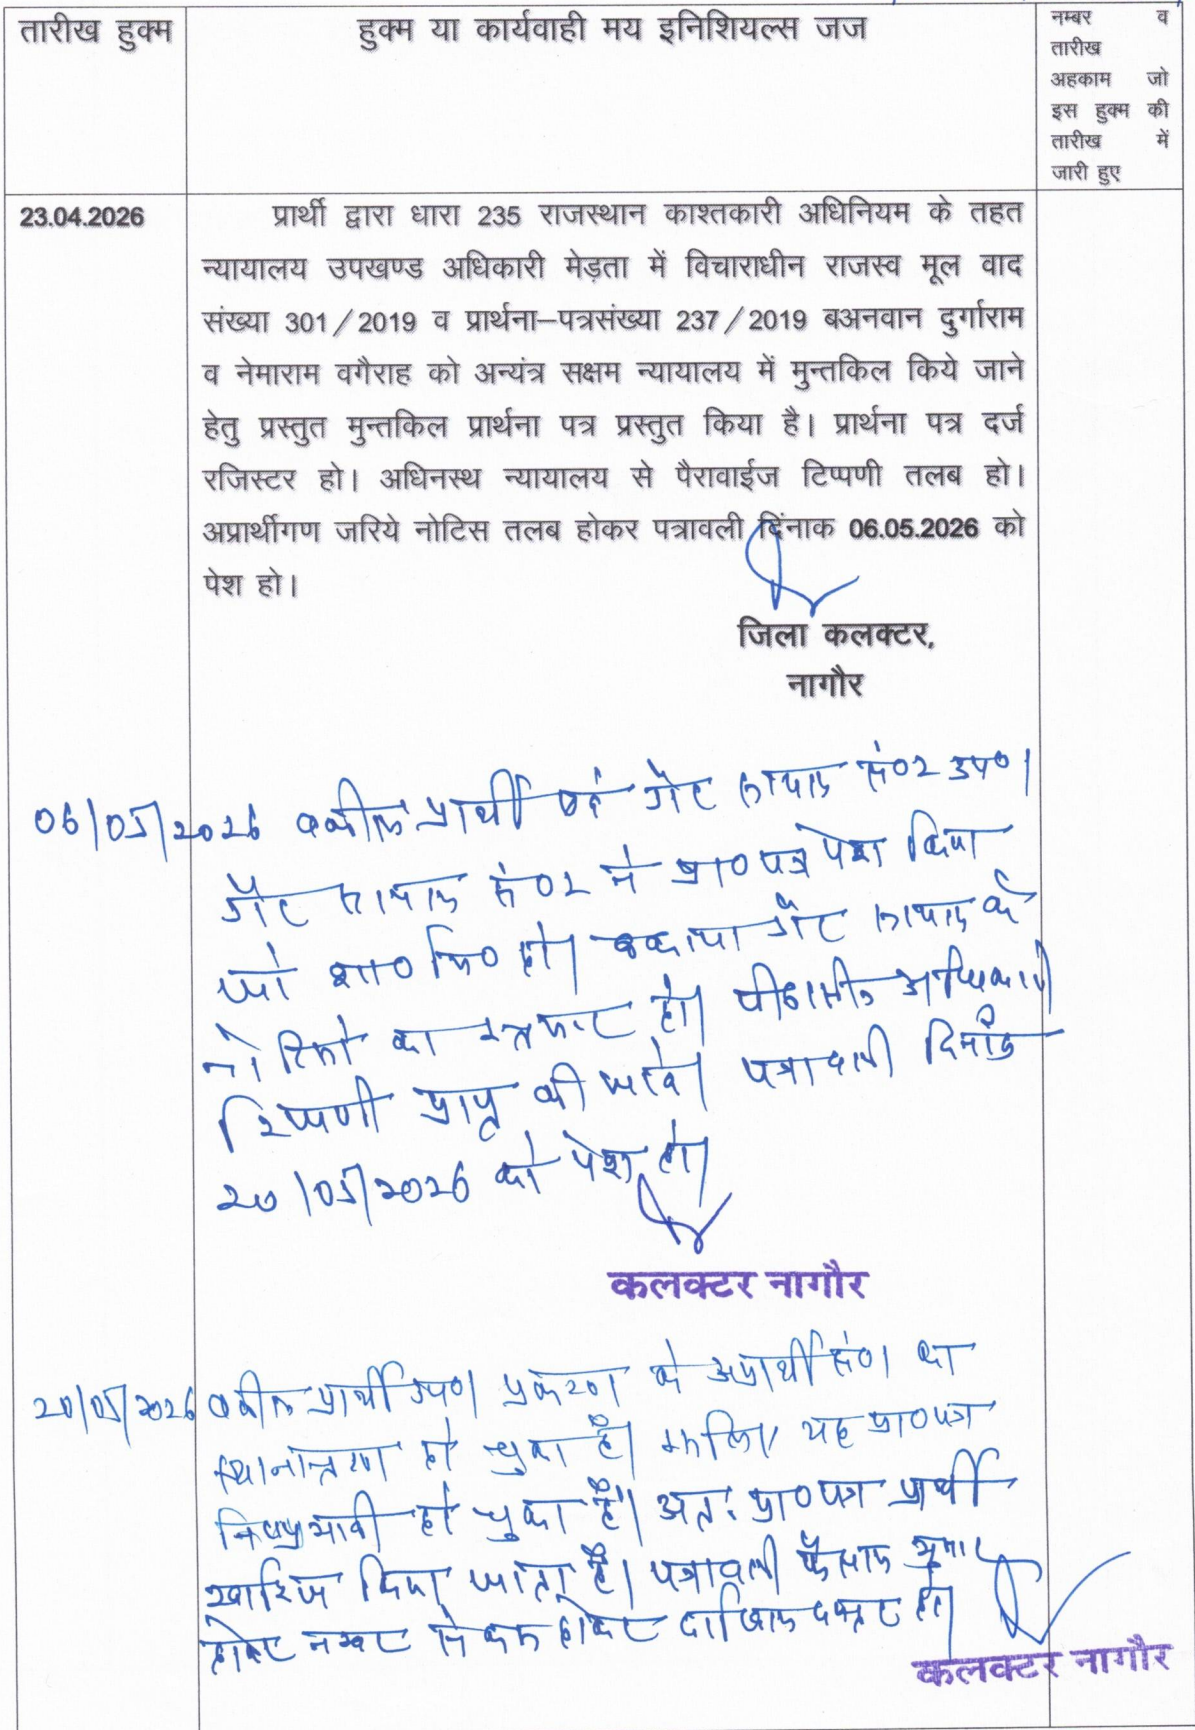 तारीख हुक्म
हुक्म या कार्यवाही मय इनिशियल्स जज
नम्बर व
तारीख
अहकाम जो
इस हुक्म की
तारीख में
जारी हुए
23.04.2026
प्रार्थी द्वारा धारा 235 राजस्थान काश्तकारी अधिनियम के तहत
न्यायालय उपखण्ड अधिकारी मेड़ता में विचाराधीन राजस्व मूल वाद
संख्या 301/2019 व प्रार्थना–पत्रसंख्या 237/2019 बअनवान दुर्गाराम
व नेमाराम वगैराह को अन्यंत्र सक्षम न्यायालय में मुन्तकिल किये जाने
हेतु प्रस्तुत मुन्तकिल प्रार्थना पत्र प्रस्तुत किया है। प्रार्थना पत्र दर्ज
रजिस्टर हो। अधिनस्थ न्यायालय से पैरावाईज टिप्पणी तलब हो।
अप्रार्थीगण जरिये नोटिस तलब होकर पत्रावली दिंनाक 06.05.2026 को
पेश हो।
जिला कलक्टर,
नागौर
06/05/2026 वकील प्रार्थी एवं गैर सायल सं०2 उप०।
गैर सायल सं०2 ने प्रा०पत्र पेश किया
जो शा०मि० हो। बकाया गैर सायल के
नोटिसो का इन्तजार हो। पीठासीन अधिकारी
टिप्पणी प्राप्त की जावे। पत्रावली दिनांक
20/05/2026 को पेश हो।
कलक्टर नागौर
20/05/2026 वकील प्रार्थी उप०। प्रकरण के अप्रार्थी सं०1 का
स्थानान्तरण हो चुका है। इसलिए यह प्रा०पत्र
निष्प्रभावी हो चुका है। अतः प्रा०पत्र प्रार्थी
खारिज किया जाता है। पत्रावली फैसल शुमार
होकर नम्बर से कम होकर दाखिल दफ्तर हो।
कलक्टर नागौर